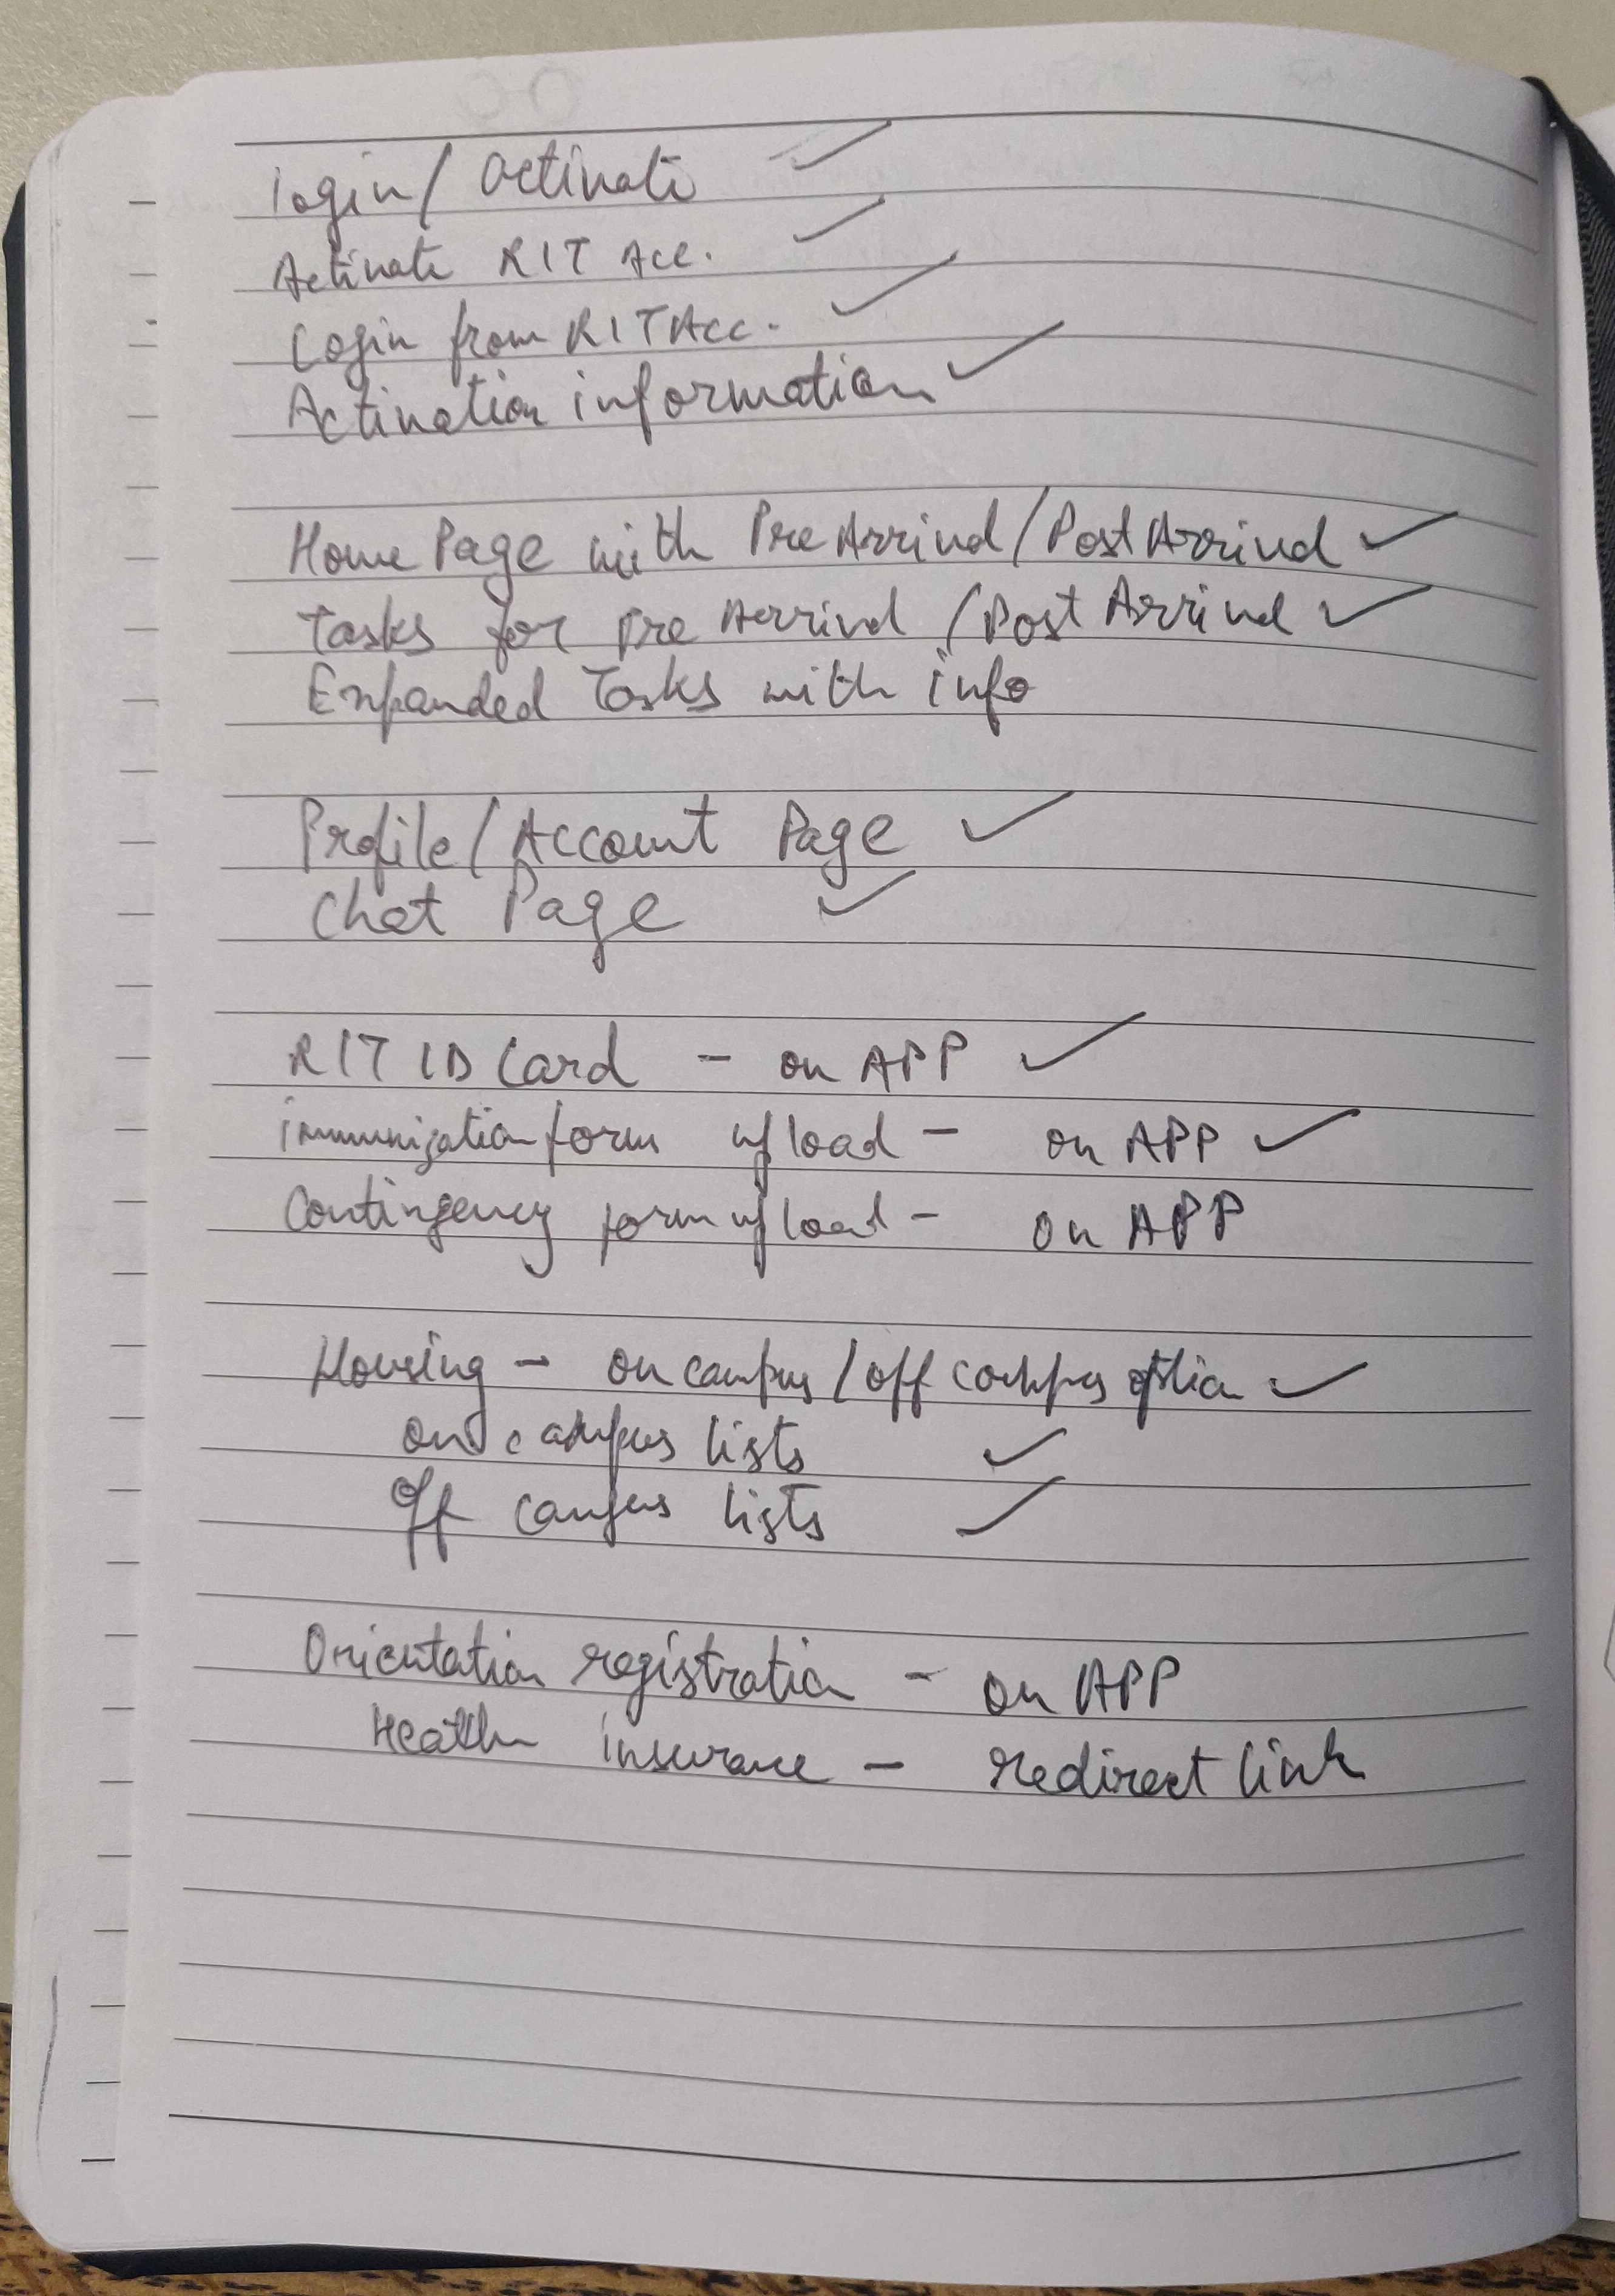 login/ Activate ✓
Activate RIT Acc. ✓
Login from RIT Acc. ✓
Activation information ✓
Home Page with Pre Arrival/Post Arrival ✓
Tasks for Pre Arrival /Post Arrival ✓
Expanded Tasks with info
Profile/Account Page ✓
Chat Page ✓
RIT ID Card - on APP ✓
immunization form upload - on APP ✓
Contingency form upload - on APP
Housing - on campus/off campus option ✓
on campus lists ✓
Off campus lists ✓
Orientation registration - on APP
Health insurance - redirect link